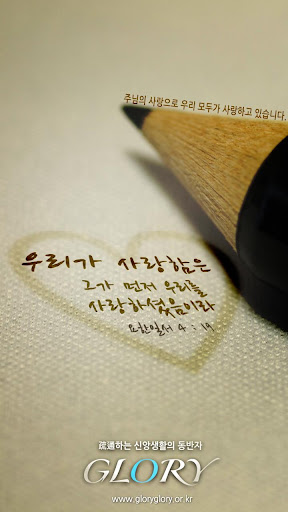 주님의 사랑으로 우리 모두가 사랑하고 있습니다.
우리가 사랑함은
그가 먼저 우리를
사랑하셨음이라
요한일서 4 : 19
疏通하는 신앙생활의 동반자
GLORY
www.gloryglory.or.kr